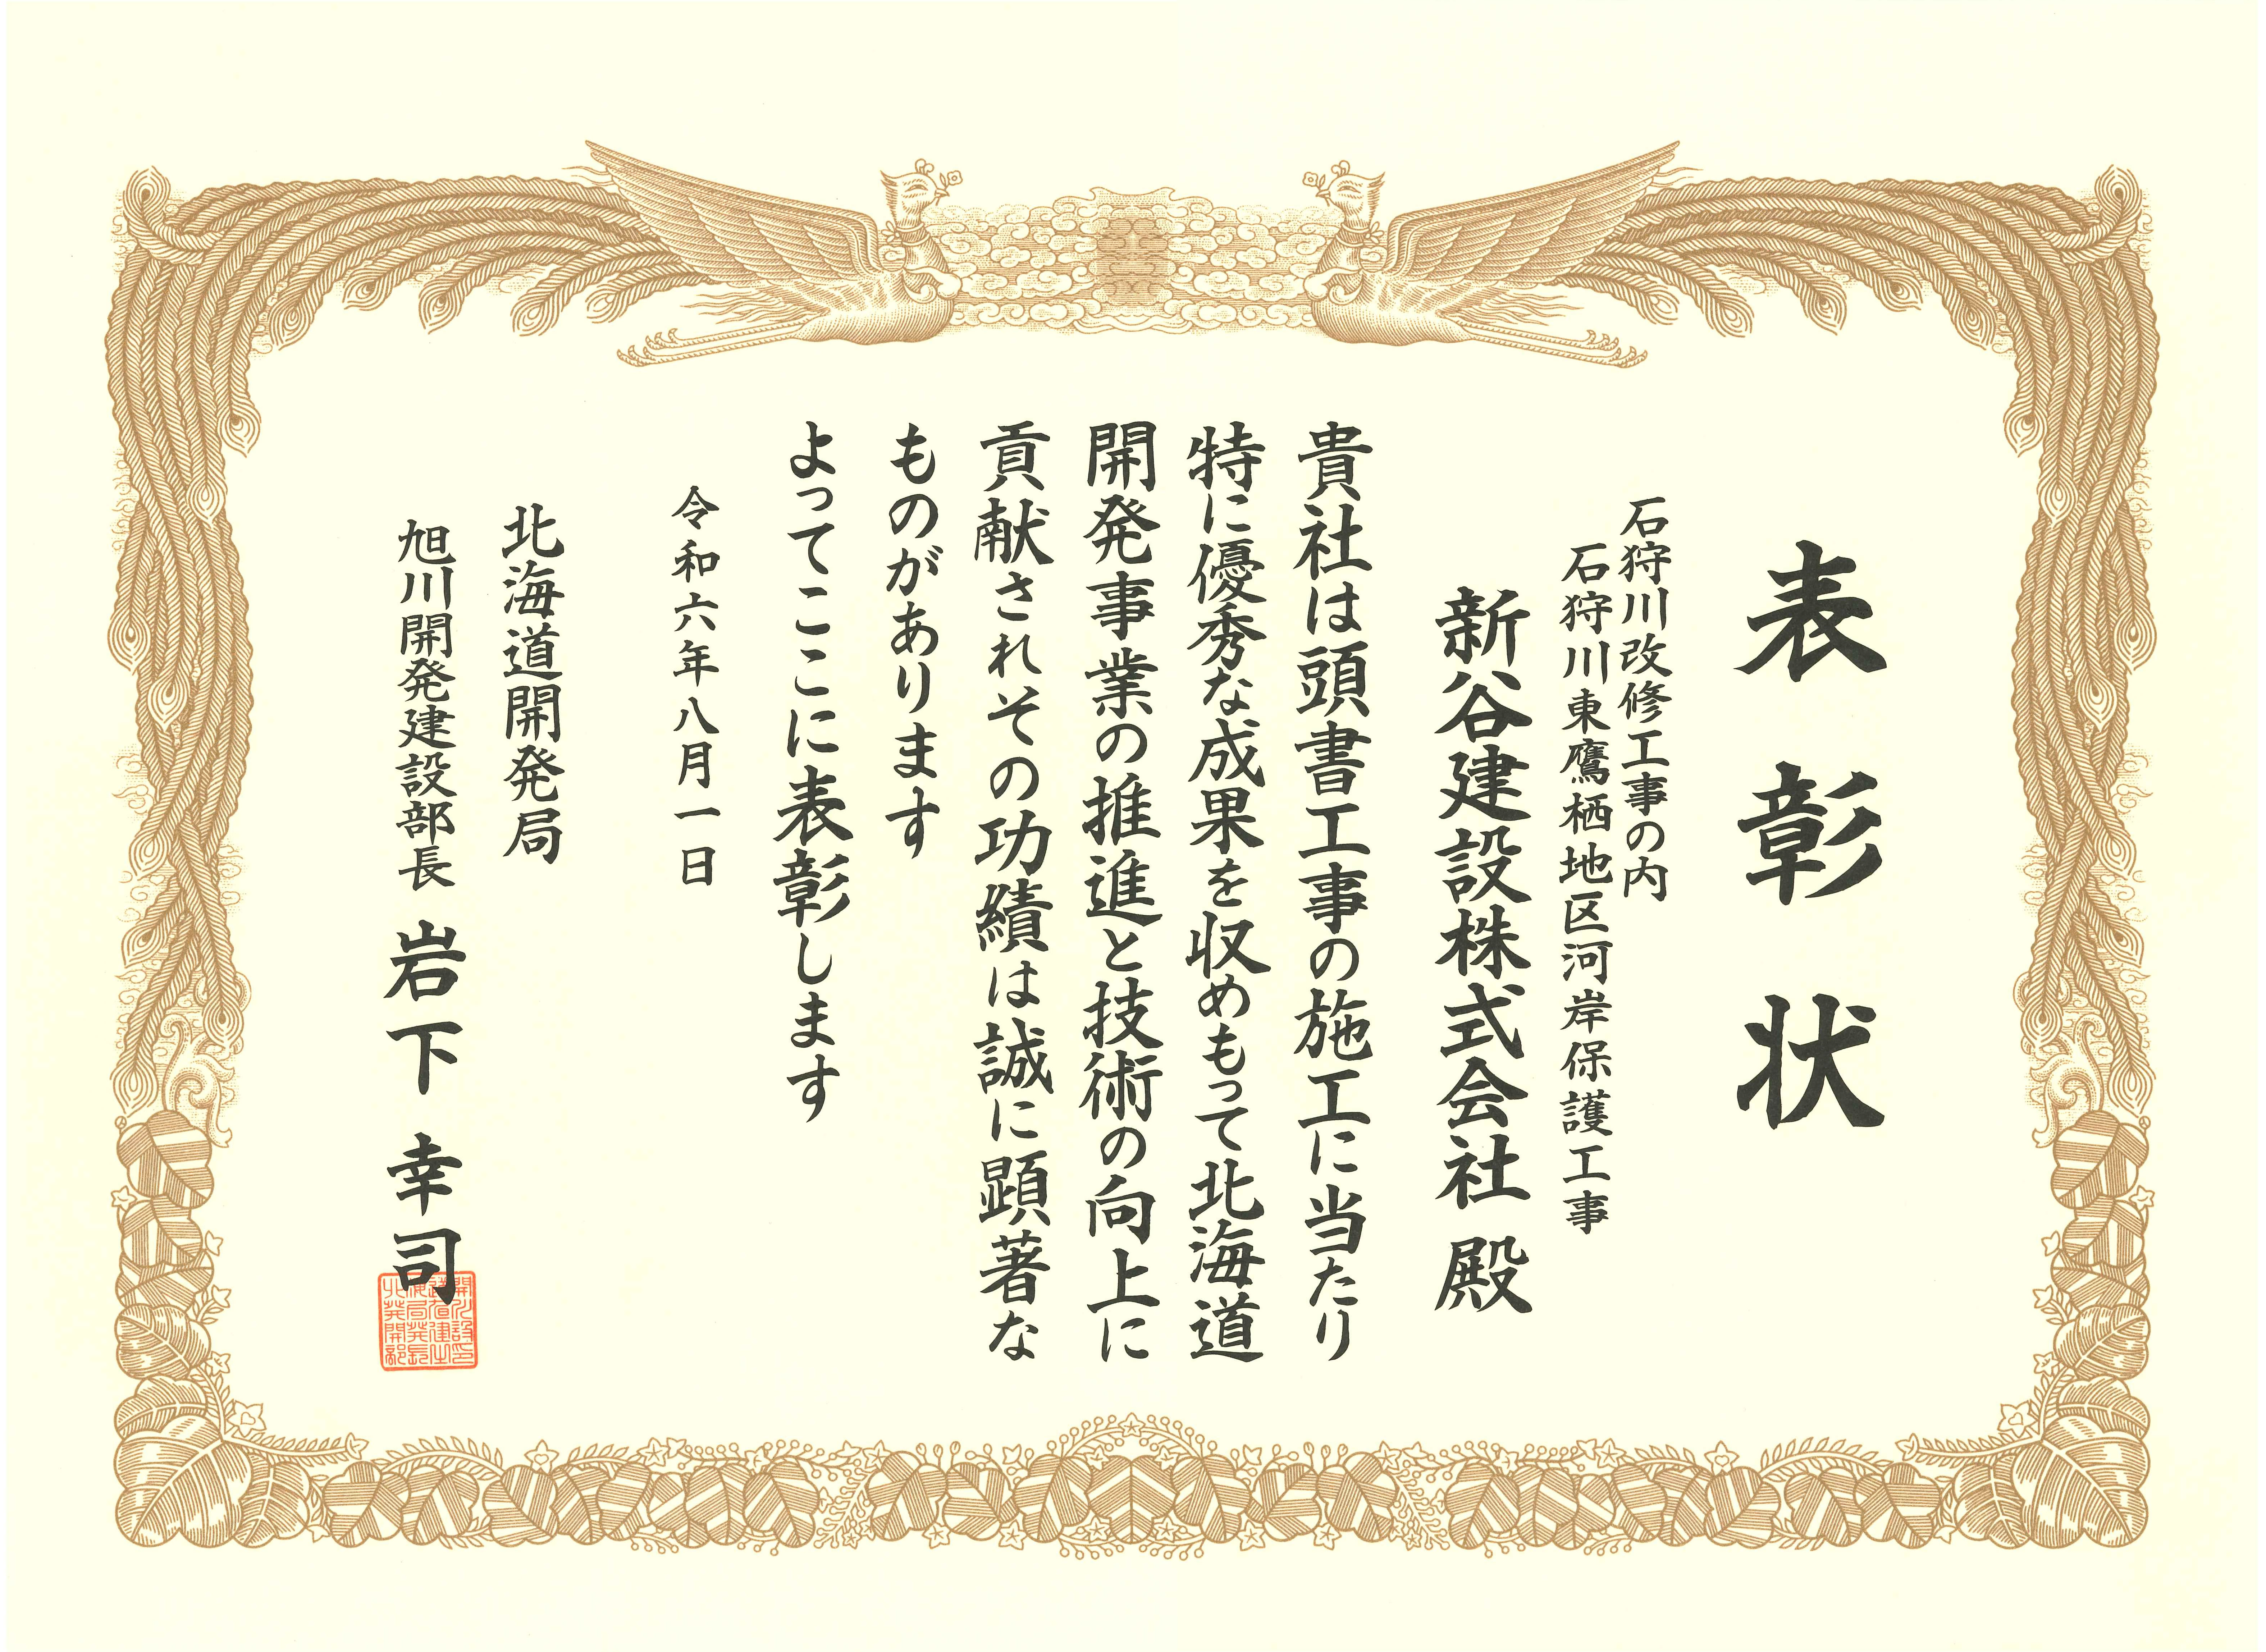 表彰状
石狩川改修工事の内
石狩川東鷹栖地区河岸保護工事
新谷建設株式会社 殿
貴社は頭書工事の施工に当たり
特に優秀な成果を収めもって北海道
開発事業の推進と技術の向上に
貢献されその功績は誠に顕著な
ものがあります
よってここに表彰します
令和六年八月一日
北海道開発局
旭川開発建設部長 岩下幸司